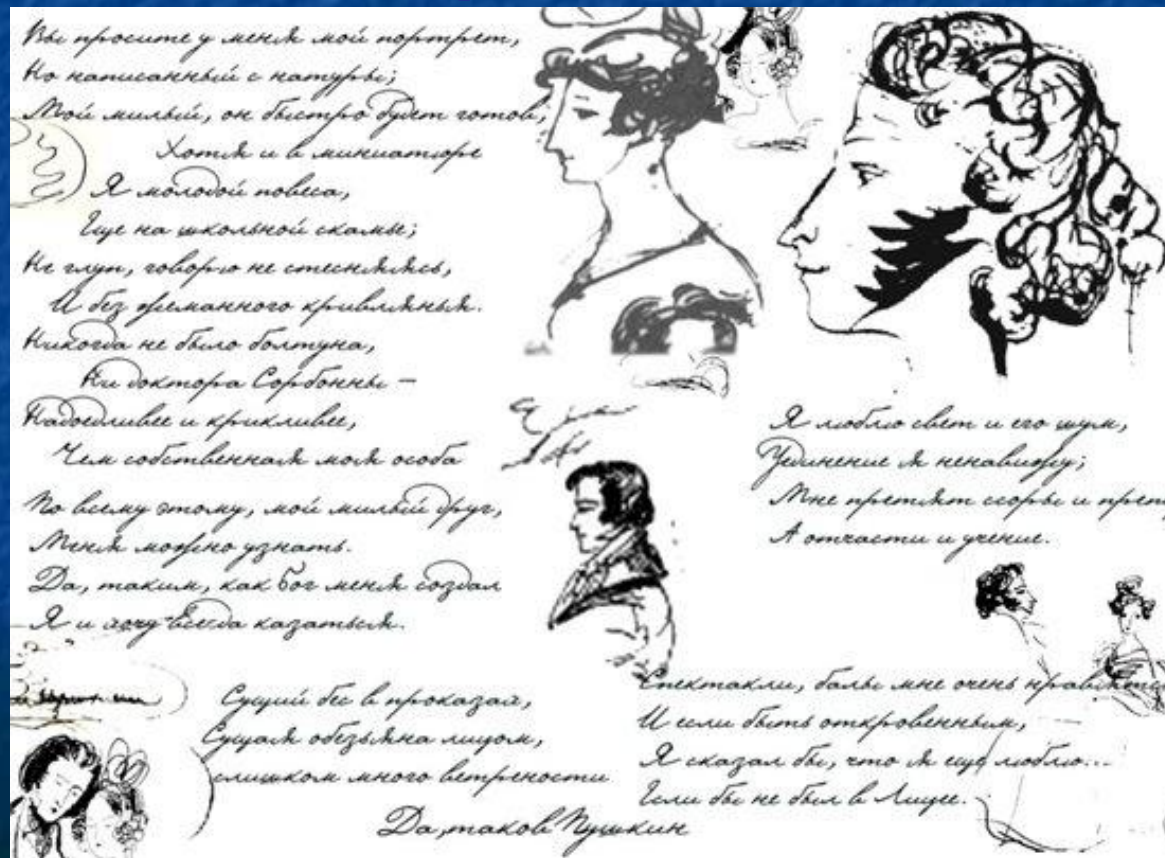 Вы просите у меня мой портрет,
Но написанный с натуры;
Мой милый, он быстро будет готов,
Хотя и в миниатюре
Я молодой повеса,
Еще на школьной скамье;
Не глуп, говорю не стесняясь,
И без жеманного кривлянья.
Никогда не было болтуна,
Ни доктора Сорбонны –
Надоедливее и крикливее,
Чем собственная моя особа
По всему этому, мой милый друг,
Меня можно узнать.
Да, таким, как Бог меня создал
Я и хочу всегда казаться.
Сущий бес в проказах,
Сущая обезьяна лицом,
слишком много ветрености
Да, таков Пушкин
Я люблю свет и его шум,
Уединение я ненавижу;
Мне претят ссоры и преп
А отчасти и учение.
Спектакли, балы мне очень нравятся
И если быть откровенным,
Я сказал бы, что я еще люблю...
Если бы не был в Лицее.